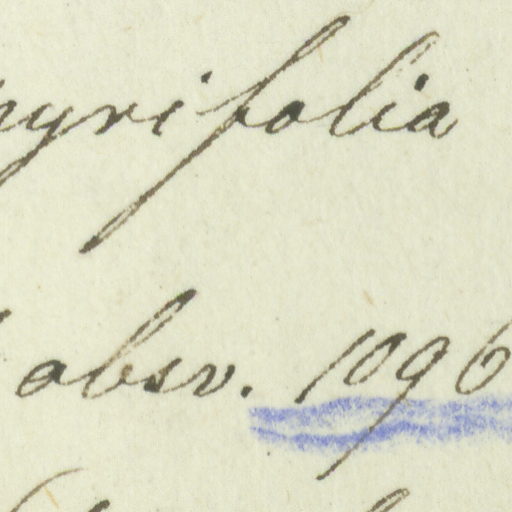 pyrifolia
absv. 1096